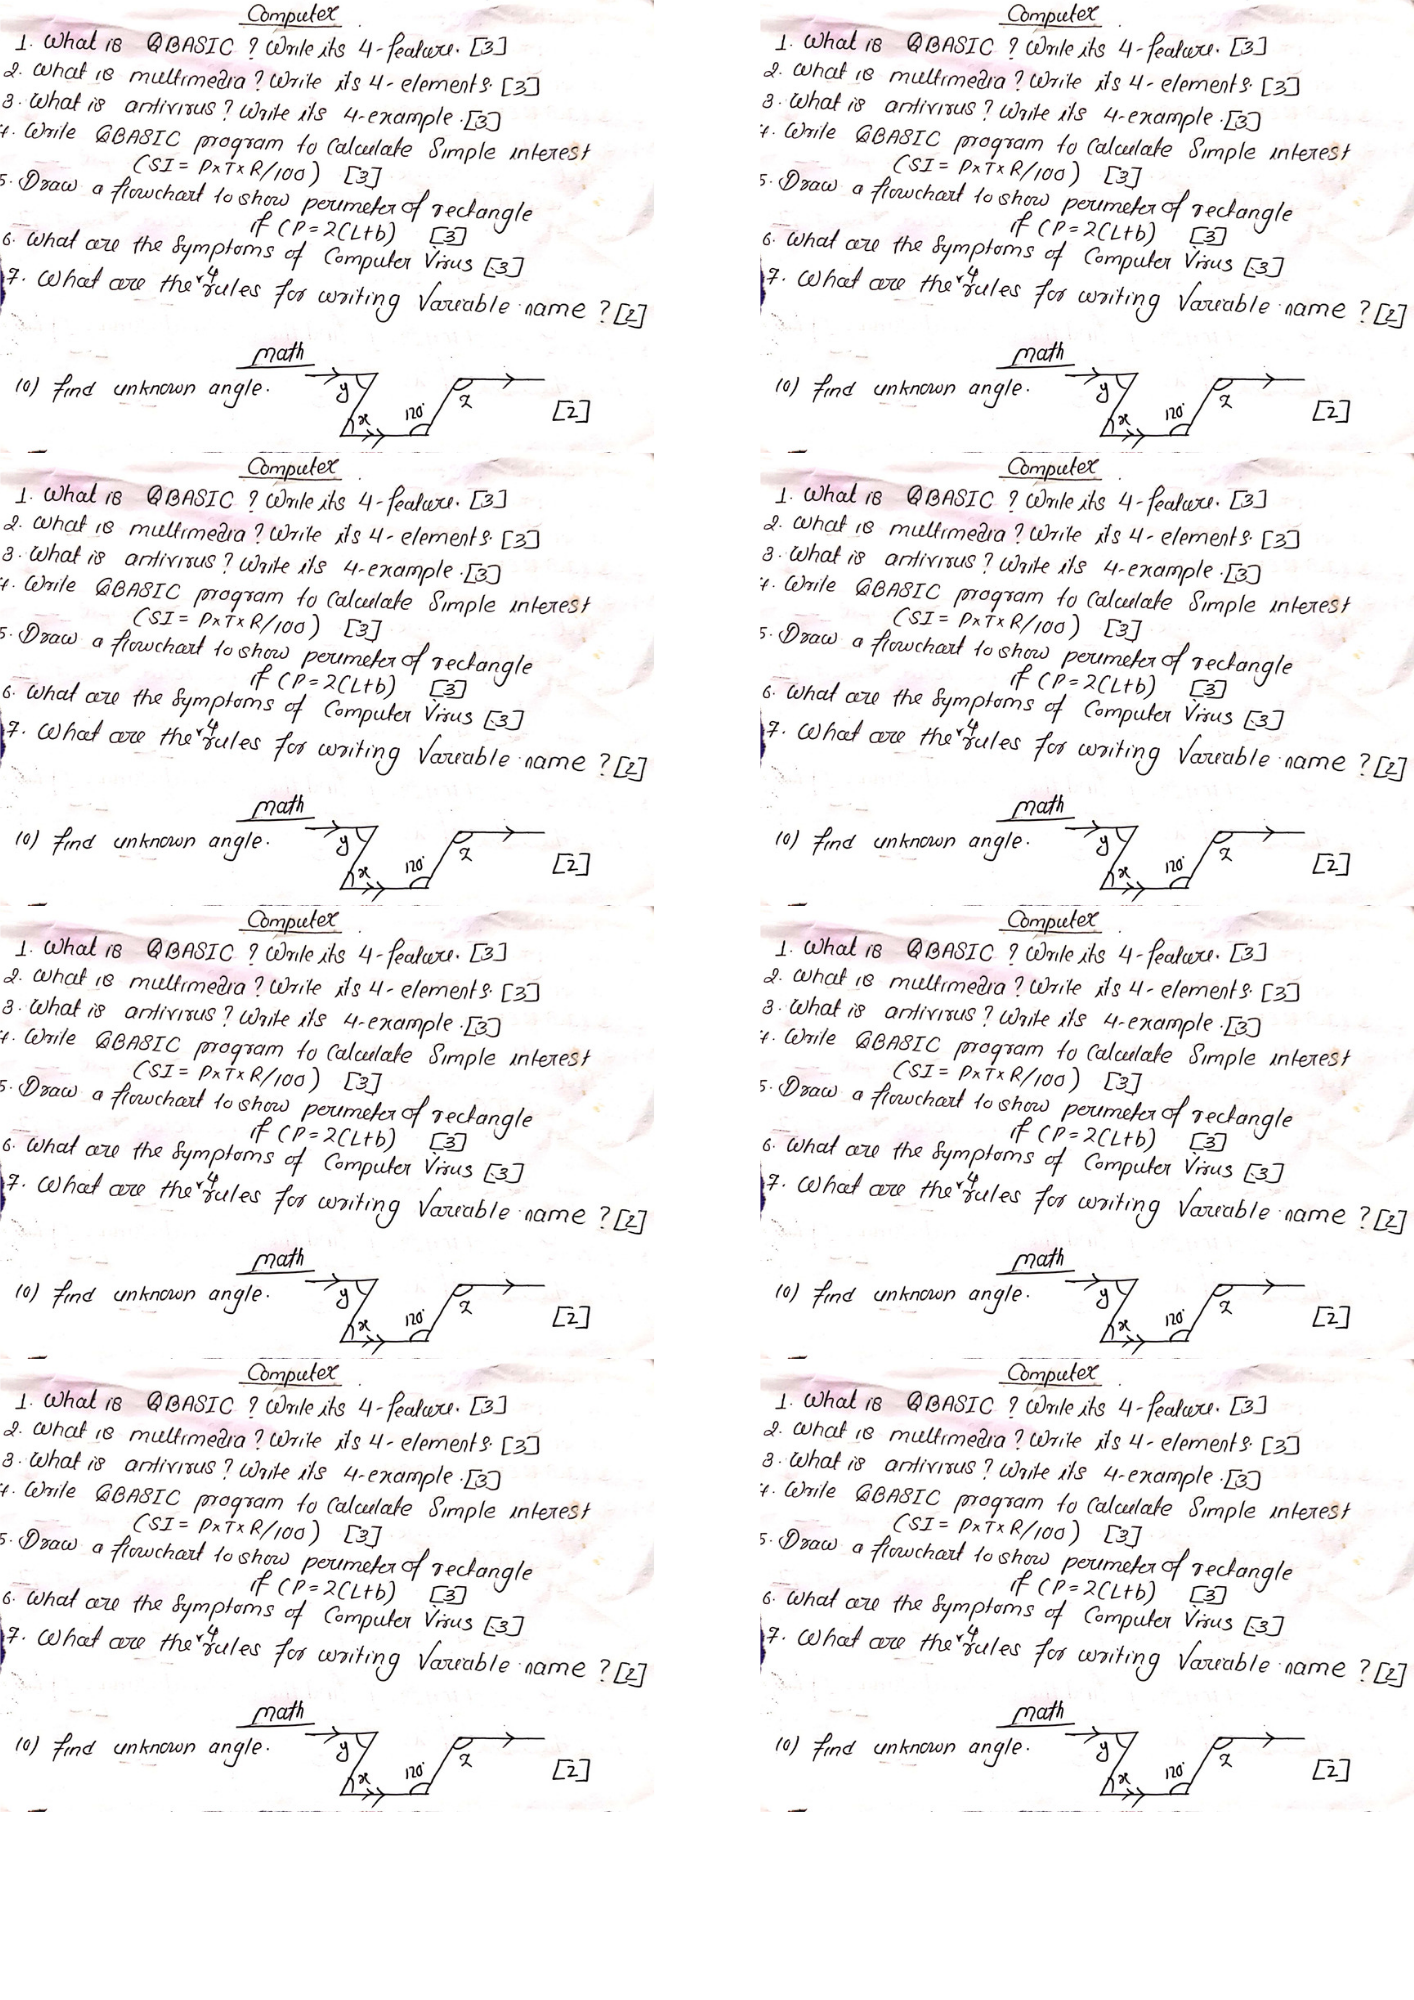 Computer
1. What is QBASIC ? Write its 4-feature. [3]
2. What is multimedia ? Write its 4-elements. [3]
3. What is antivirus ? Write its 4-example. [3]
4. Write QBASIC program to Calculate Simple interest
(SI = P×T×R/100) [3]
5. Draw a flowchart to show perimeter of rectangle
if (P=2(L+b) [3]
6. What are the Symptoms of Computer Virus [3]
7. What are the 4 rules for writing Variable name ? [2]
math
10) Find unknown angle.
y
x
120°
z
[2]
Computer
1. What is QBASIC ? Write its 4-feature. [3]
2. What is multimedia ? Write its 4-elements. [3]
3. What is antivirus ? Write its 4-example. [3]
4. Write QBASIC program to Calculate Simple interest
(SI = P×T×R/100) [3]
5. Draw a flowchart to show perimeter of rectangle
if (P=2(L+b) [3]
6. What are the Symptoms of Computer Virus [3]
7. What are the 4 rules for writing Variable name ? [2]
math
10) Find unknown angle.
y
x
120°
z
[2]
Computer
1. What is QBASIC ? Write its 4-feature. [3]
2. What is multimedia ? Write its 4-elements. [3]
3. What is antivirus ? Write its 4-example. [3]
4. Write QBASIC program to Calculate Simple interest
(SI = P×T×R/100) [3]
5. Draw a flowchart to show perimeter of rectangle
if (P=2(L+b) [3]
6. What are the Symptoms of Computer Virus [3]
7. What are the 4 rules for writing Variable name ? [2]
math
10) Find unknown angle.
y
x
120°
z
[2]
Computer
1. What is QBASIC ? Write its 4-feature. [3]
2. What is multimedia ? Write its 4-elements. [3]
3. What is antivirus ? Write its 4-example. [3]
4. Write QBASIC program to Calculate Simple interest
(SI = P×T×R/100) [3]
5. Draw a flowchart to show perimeter of rectangle
if (P=2(L+b) [3]
6. What are the Symptoms of Computer Virus [3]
7. What are the 4 rules for writing Variable name ? [2]
math
10) Find unknown angle.
y
x
120°
z
[2]
Computer
1. What is QBASIC ? Write its 4-feature. [3]
2. What is multimedia ? Write its 4-elements. [3]
3. What is antivirus ? Write its 4-example. [3]
4. Write QBASIC program to Calculate Simple interest
(SI = P×T×R/100) [3]
5. Draw a flowchart to show perimeter of rectangle
if (P=2(L+b) [3]
6. What are the Symptoms of Computer Virus [3]
7. What are the 4 rules for writing Variable name ? [2]
math
10) Find unknown angle.
y
x
120°
z
[2]
Computer
1. What is QBASIC ? Write its 4-feature. [3]
2. What is multimedia ? Write its 4-elements. [3]
3. What is antivirus ? Write its 4-example. [3]
4. Write QBASIC program to Calculate Simple interest
(SI = P×T×R/100) [3]
5. Draw a flowchart to show perimeter of rectangle
if (P=2(L+b) [3]
6. What are the Symptoms of Computer Virus [3]
7. What are the 4 rules for writing Variable name ? [2]
math
10) Find unknown angle.
y
x
120°
z
[2]
Computer
1. What is QBASIC ? Write its 4-feature. [3]
2. What is multimedia ? Write its 4-elements. [3]
3. What is antivirus ? Write its 4-example. [3]
4. Write QBASIC program to Calculate Simple interest
(SI = P×T×R/100) [3]
5. Draw a flowchart to show perimeter of rectangle
if (P=2(L+b) [3]
6. What are the Symptoms of Computer Virus [3]
7. What are the 4 rules for writing Variable name ? [2]
math
10) Find unknown angle.
y
x
120°
z
[2]
Computer
1. What is QBASIC ? Write its 4-feature. [3]
2. What is multimedia ? Write its 4-elements. [3]
3. What is antivirus ? Write its 4-example. [3]
4. Write QBASIC program to Calculate Simple interest
(SI = P×T×R/100) [3]
5. Draw a flowchart to show perimeter of rectangle
if (P=2(L+b) [3]
6. What are the Symptoms of Computer Virus [3]
7. What are the 4 rules for writing Variable name ? [2]
math
10) Find unknown angle.
y
x
120°
z
[2]